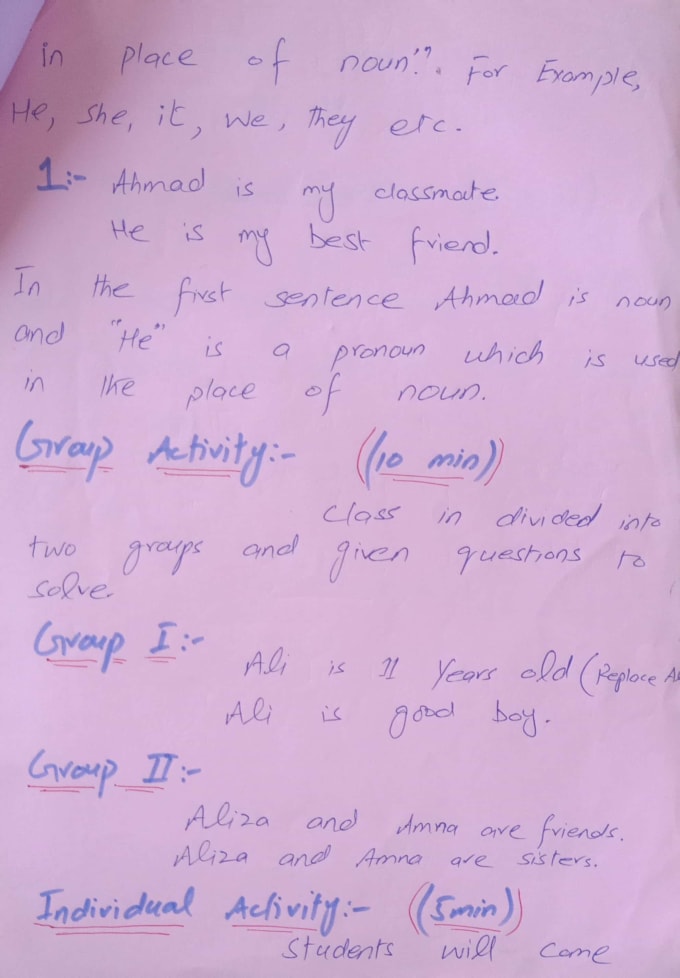 in place of noun". For Example,
He, she, it, we, they etc.
1:- Ahmad is my classmate.
He is my best friend.
In the first sentence Ahmad is noun
and "He" is a pronoun which is used
in the place of noun.
Group Activity:- (10 min)
Class in divided into
two groups and given questions to
solve.
Group I:-
Ali is 11 Years old (Replace
Ali is good boy.
Group II:-
Aliza and Amna are friends.
Aliza and Amna are sisters.
Individual Activity:- (5min)
Students will come